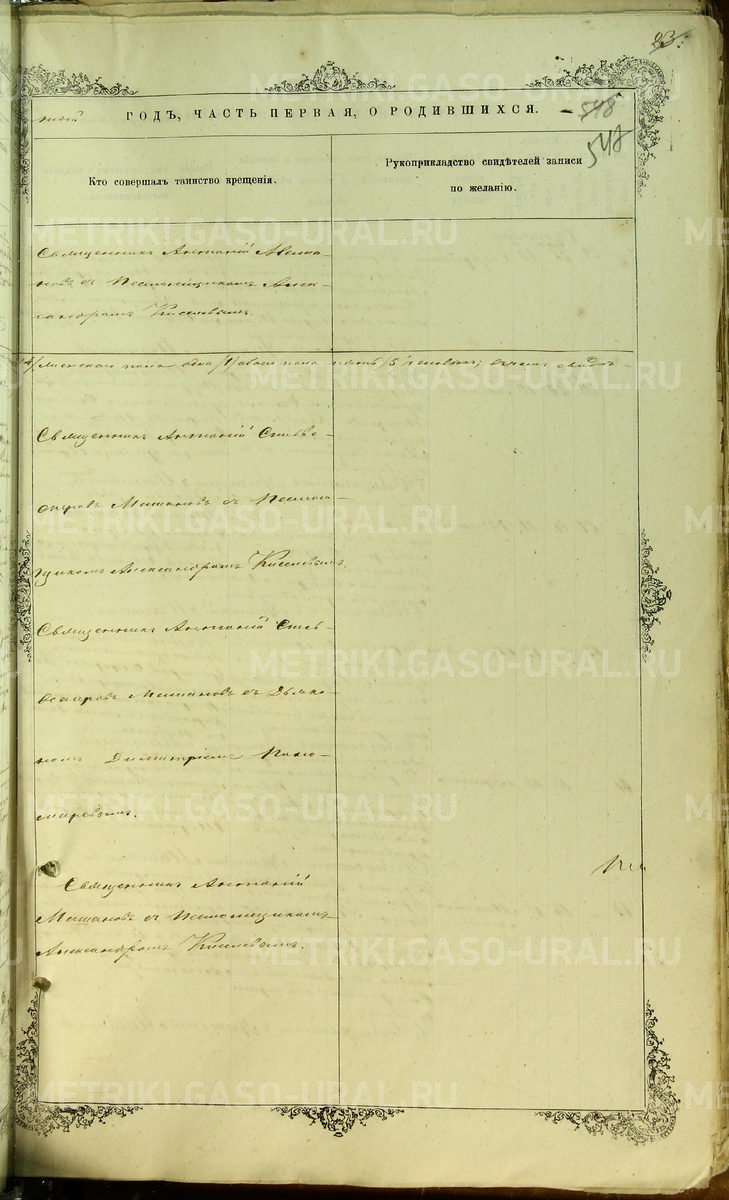 23.
ГОДЪ, ЧАСТЬ ПЕРВАЯ, О РОДИВШИХСЯ.
548
548
Кто совершалъ таинство крещенія.
Рукоприкладство свидѣтелей записи
по желанію.
Священникъ Антоній
съ Псаломщикомъ Алек-
сандромъ Киселевымъ.
женскаго пола одна /1/ обоего пола пять /5/ человѣкъ; въ чемъ свидѣ-
Священникъ Антоній Сильве-
стровъ Машановъ съ Псалом-
щикомъ Александромъ Киселевымъ.
Священникъ Антоній Силь-
вестровъ Машановъ съ Діяко-
номъ Димитріемъ Поно-
маревымъ.
Священникъ Антоній
Машановъ съ Псаломщикомъ
Александромъ Киселевымъ.
METRIKI.GASO-URAL.RU